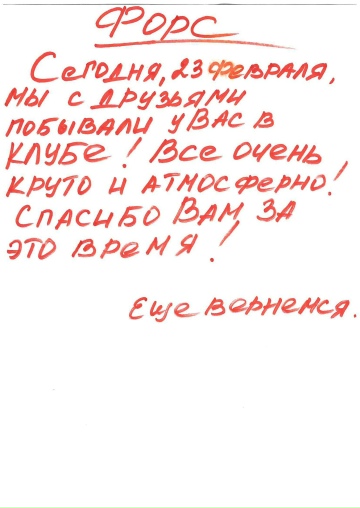 Форс
Сегодня, 23 февраля,
мы с друзьями
побывали у Вас в
клубе! Все очень
круто и атмосферно!
Спасибо Вам за
это время!
Еще вернемся.